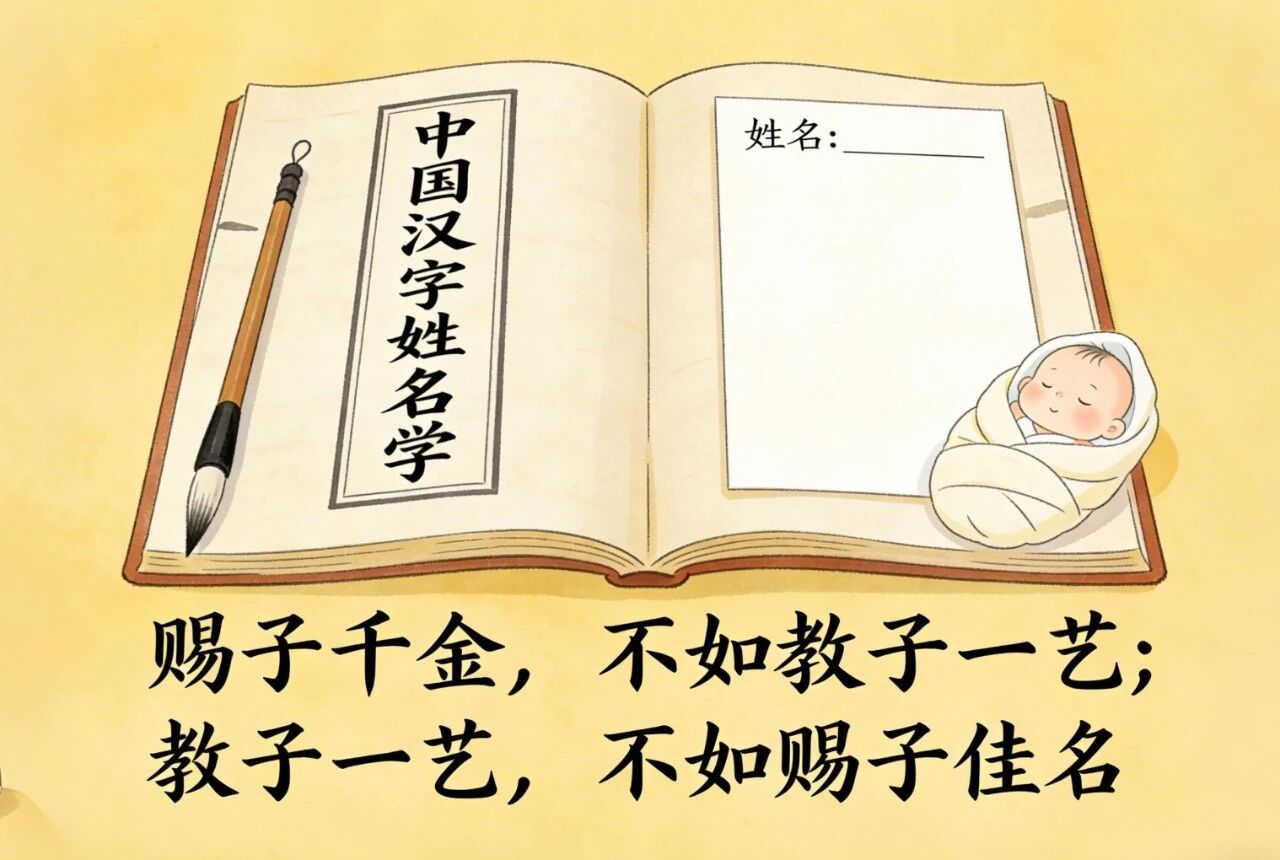 中国汉字姓名学
姓名:
赐子千金，不如教子一艺；
教子一艺，不如赐子佳名